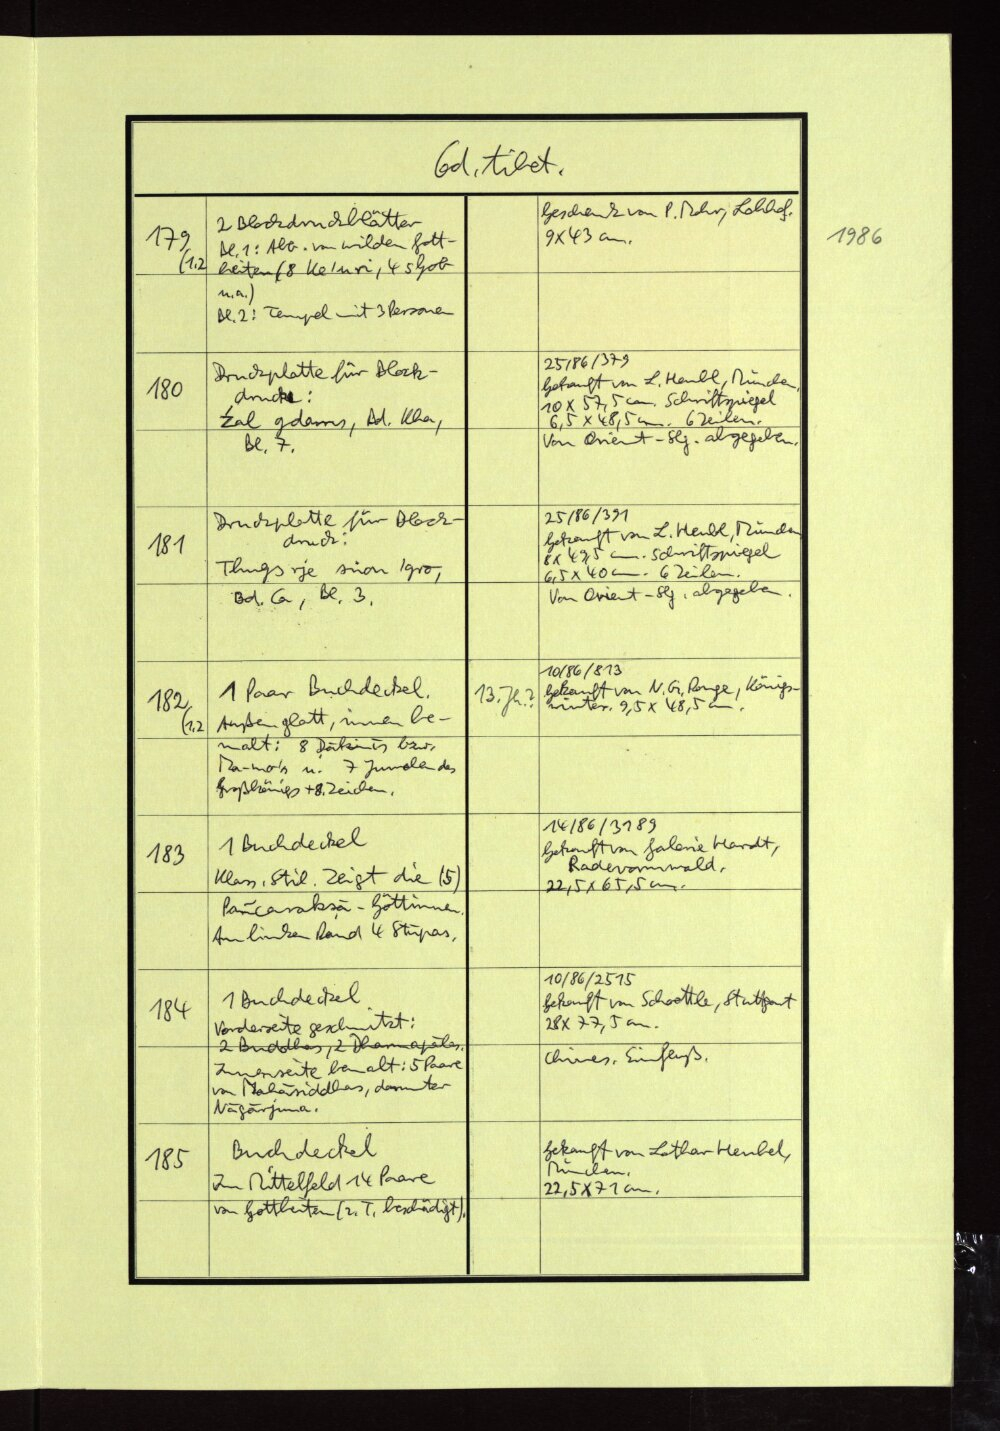 Cod. tibet.
179
(1.2
2 Blockdruckblätter
Bl. 1: Abb. von wilden Gott-
heiten (8 Ke'uri, 4 sGo
u.a.)
Bl. 2: Tempel mit 3 Personen
Geschenk von P. Mohr, Lohhof.
9 x 43 cm.
1986
180
Druckplatte für Block-
drucke:
Źal gdams, Bd. Kha,
Bl. 7.
25/86/379
Gekauft von L. Heubl, München,
10 x 57,5 cm. Schriftspiegel
6,5 x 48,5 cm. 6 Zeilen.
Von Orient-Slg. abgegeben.
181
Druckplatte für Block-
druck:
Thugs rje 'gro,
Bd. Ca, Bl. 3.
25/86/391
Gekauft von L. Heubl, München
8 x 49,5 cm. Schriftspiegel
6,5 x 40 cm. 6 Zeilen.
Von Orient-Slg. abgegeben.
182
(1.2
1 Paar Buchdeckel.
Außen glatt, innen be-
malt: 8 Ḍākinīs bzw.
Ma-mo's u. 7 Juwelen des
Großkönigs + 8. Zeichen.
13. Jh.?
10/86/813
Gekauft von N. G. Ronge, Königs-
winter. 9,5 x 48,5 cm.
183
1 Buchdeckel
Klass. Stil. Zeigt die (5)
Pañcarakṣā-Göttinnen.
Am linken Rand 4 Stūpas.
14/86/3189
Gekauft von Galerie Hardt,
Radevormwald.
22,5 x 65,5 cm.
184
1 Buchdeckel
Vorderseite geschnitzt:
2 Buddhas, 2 Dharmapālas.
Innenseite bemalt: 5 Paare
von Mahāsiddhas, darunter
Nāgārjuna.
10/86/2515
Gekauft von Schoettle, Stuttgart
28 x 77,5 cm.
Chines. Einfluß.
185
Buchdeckel
Im Mittelfeld 14 Paare
von Gottheiten (z. T. beschädigt).
Gekauft von Lothar Heubel,
München.
22,5 x 71 cm.